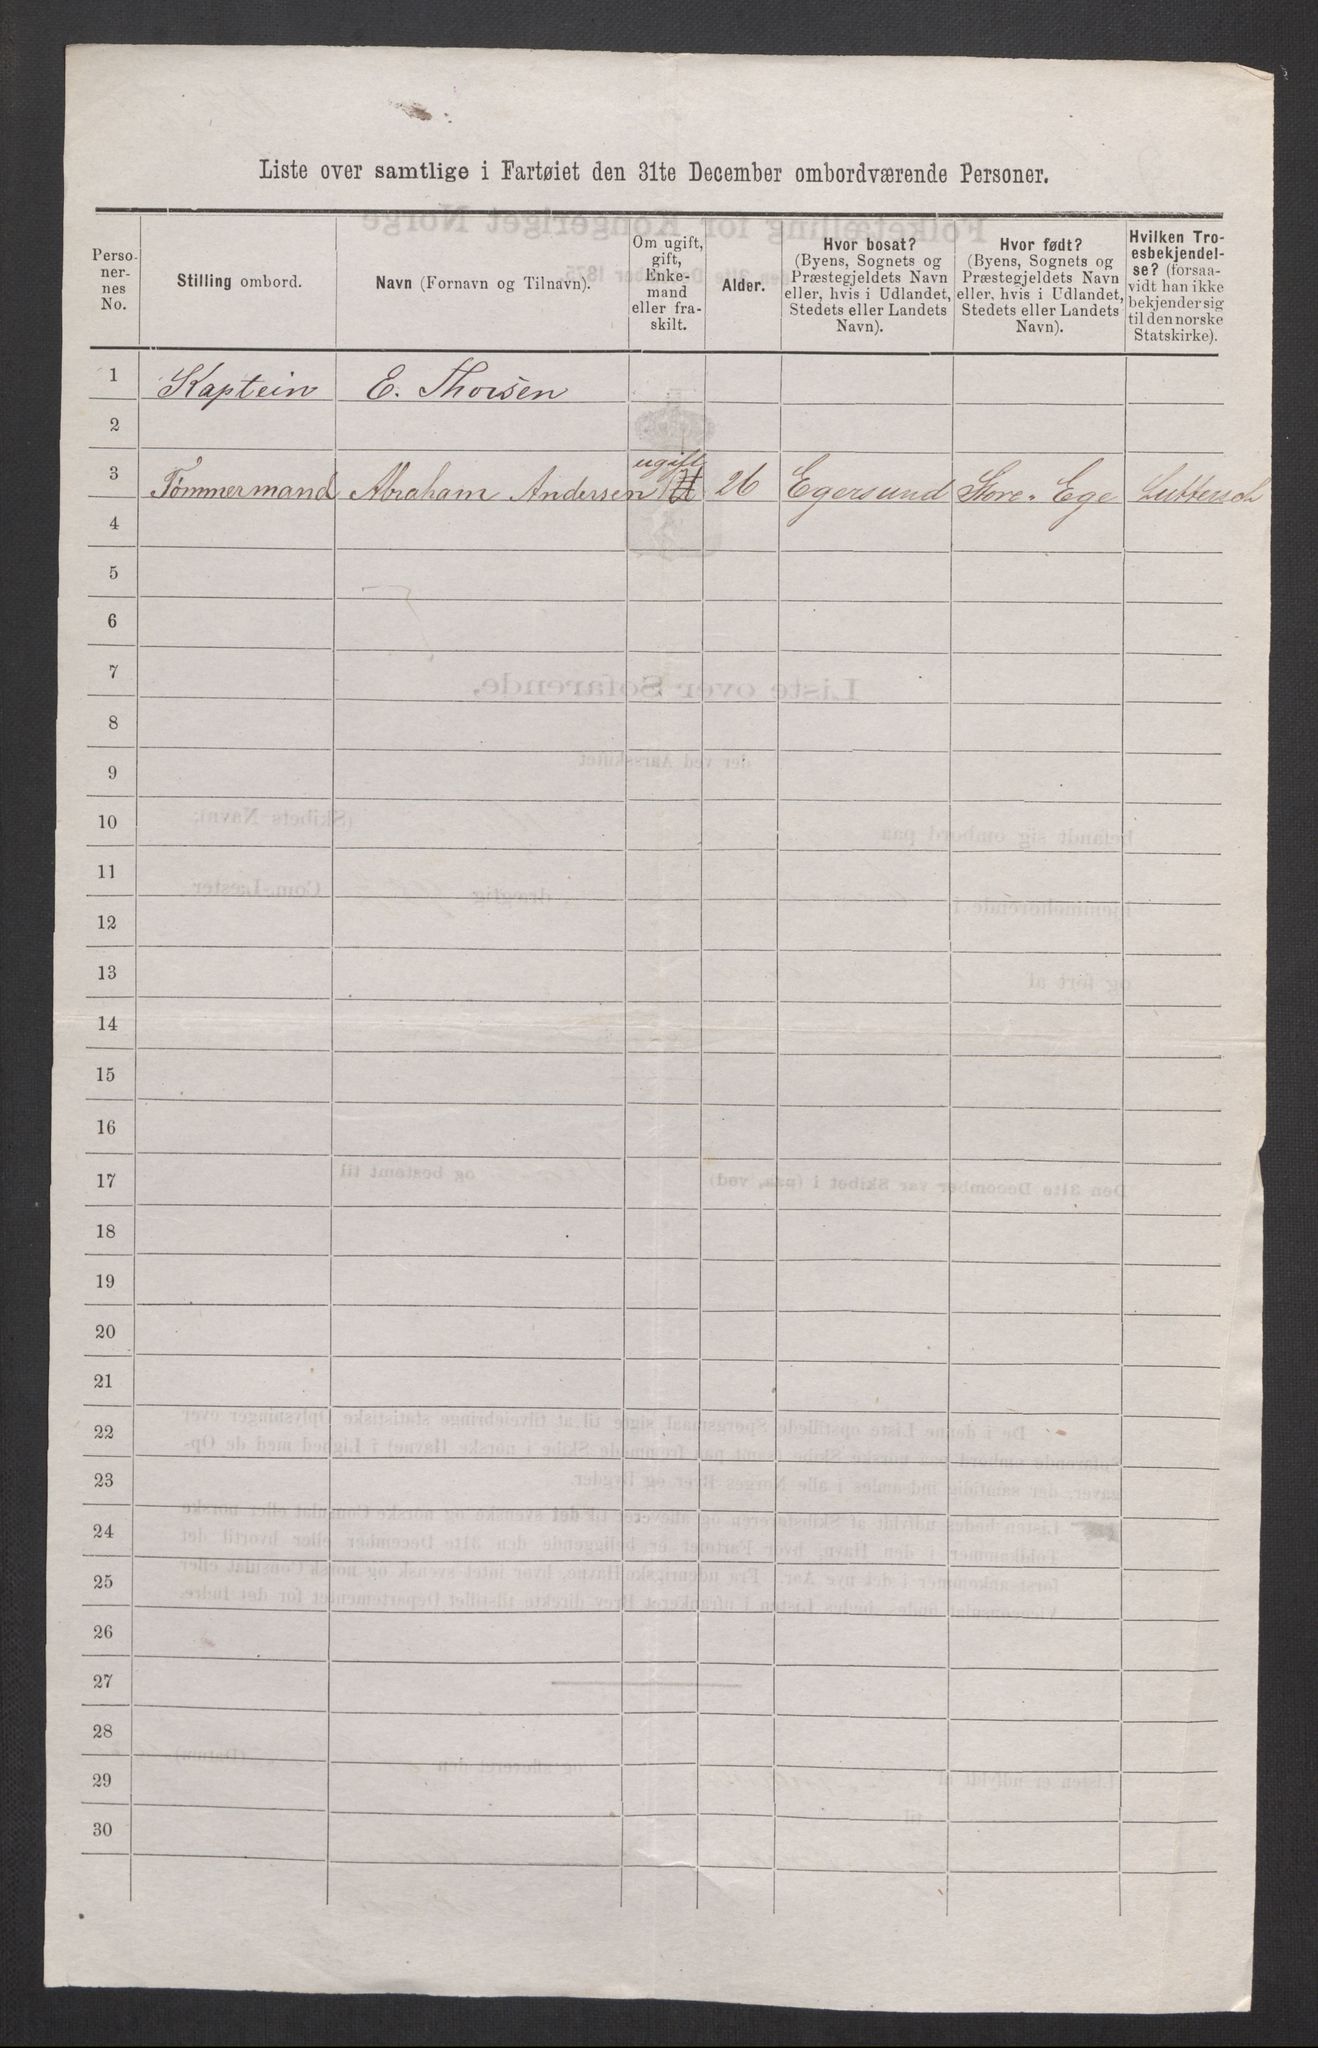 Liste over samtlige i Fartøiet den 31te December ombordværende Personer.
Perso-
ner-
nes
No.
Stilling ombord.
Navn (Fornavn og Tilnavn).
Om ugift,
gift,
Enke-
mand
eller fra-
skilt.
Alder.
Hvor bosat?
(Byens, Sognets og
Præstegjeldets Navn
eller, hvis i Udlandet,
Stedets eller Landets
Navn).
Hvor født?
(Byens, Sognets og
Præstegjeldets Navn
eller, hvis i Udlandet,
Stedets eller Landets
Navn).
Hvilken Tro-
esbekjendel-
se? (forsaa-
vidt han ikke
bekjender sig
til den norske
Statskirke).
1 Kaptein E. Thorsen
2
ugift
3 Tømmermand Abraham Andersen 26 Egersund Store-Ege Luttersch
4
5
6
7
8
9
10
11
12
13
14
15
16
17
18
19
20
21
22
23
24
25
26
27
28
29
30